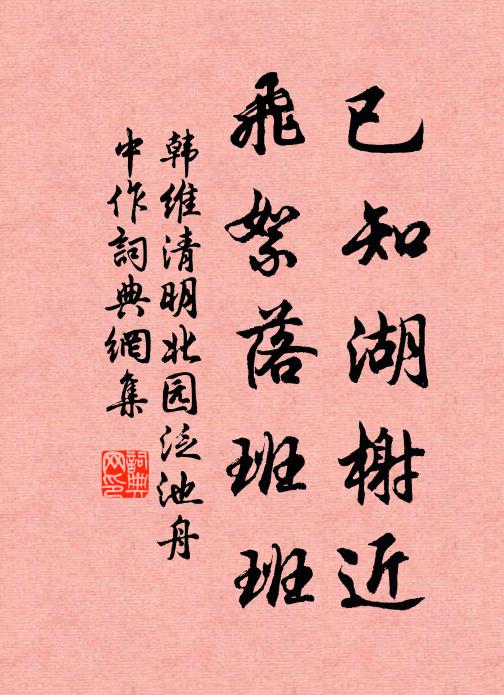 已知湖榭近
飛絮落班班
韩维清明北园泛池舟
中作詞典網集
詞典网印